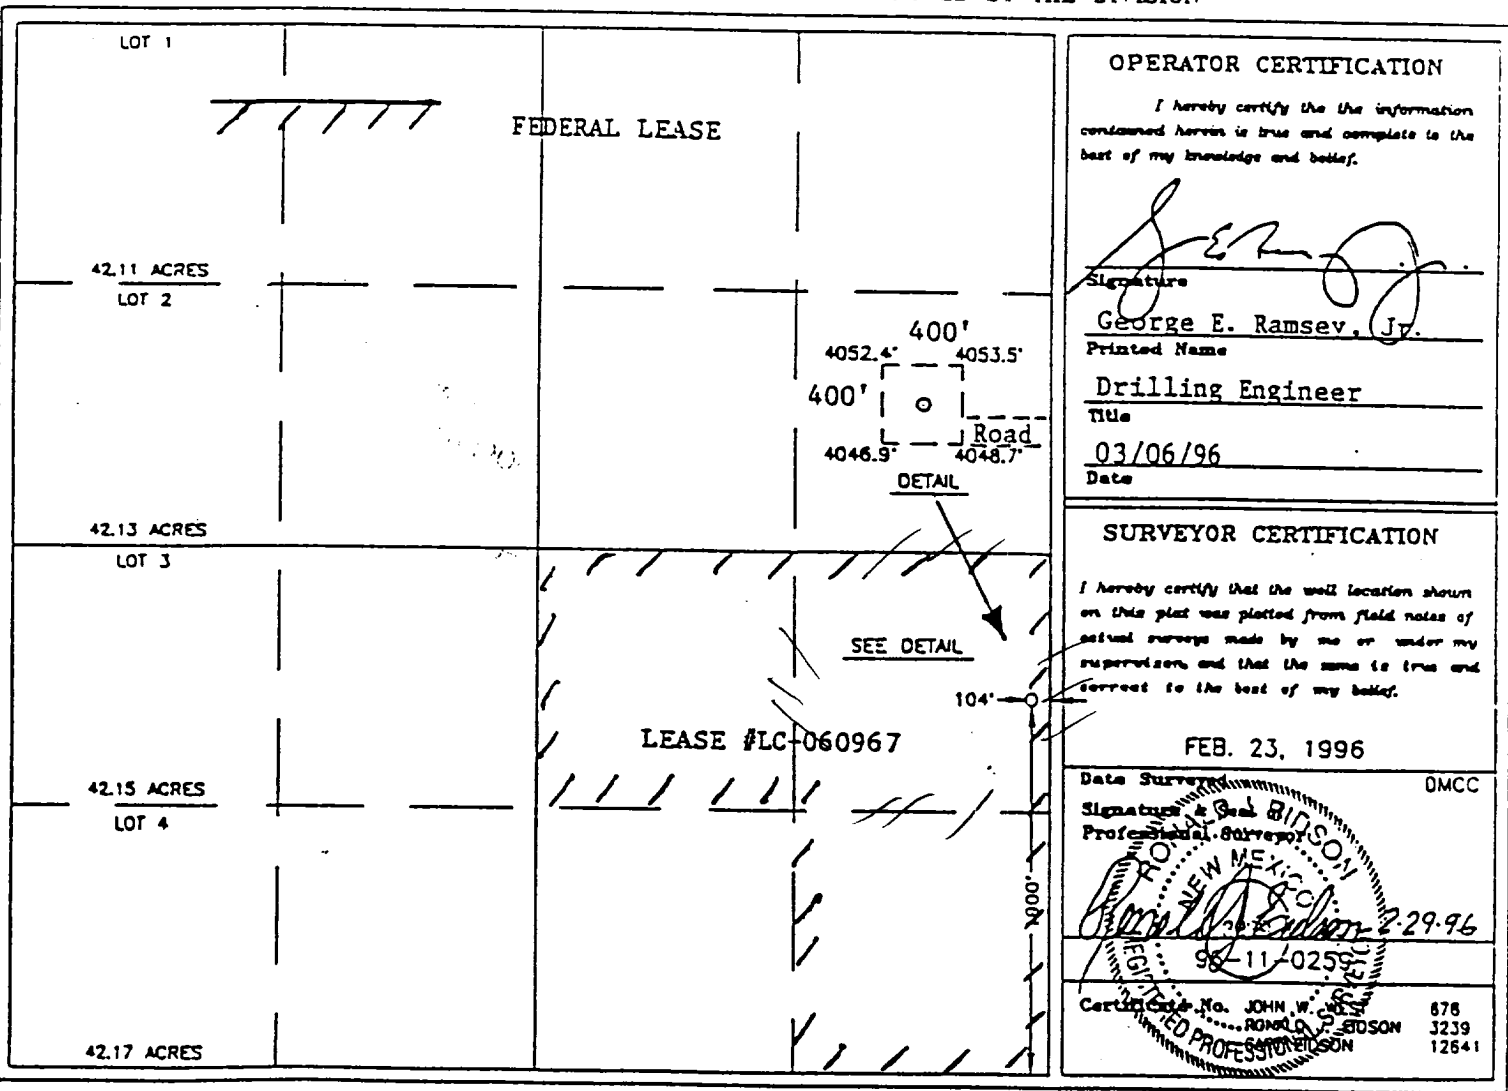 LOT 1
FEDERAL LEASE
42.11 ACRES
LOT 2
400'
4052.4' 4053.5'
400'
Road
4046.9' 4048.7'
DETAIL
42.13 ACRES
LOT 3
SEE DETAIL
104'
LEASE #LC-060967
42.15 ACRES
LOT 4
42.17 ACRES
OPERATOR CERTIFICATION
I hereby certify the the information
contained herein is true and complete to the
best of my knowledge and belief.
Signature
George E. Ramsey, Jr.
Printed Name
Drilling Engineer
Title
03/06/96
Date
SURVEYOR CERTIFICATION
I hereby certify that the well location shown
on this plat was plotted from field notes of
actual surveys made by me or under my
supervison, and that the same is true and
correct to the best of my belief.
FEB. 23, 1996
Date Surveyed DMCC
Signature & Seal of
Professional Surveyor
NEW MEXICO
2-29-96
Certificate No. JOHN W. 676
RONALD J. EIDSON 3239
GARY EIDSON 12641